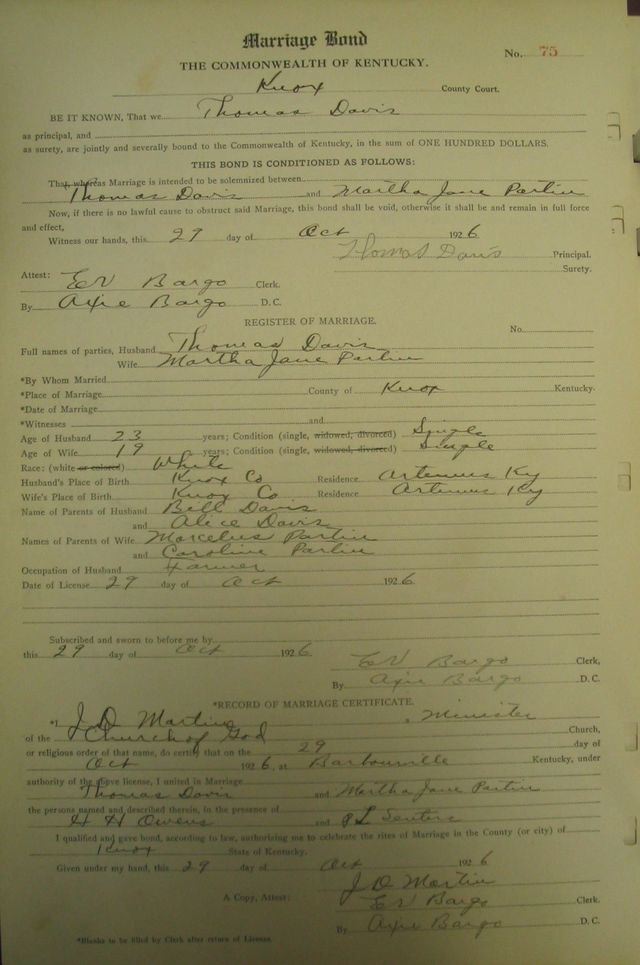 Marriage Bond
No. 75
THE COMMONWEALTH OF KENTUCKY.
Knox County Court.
BE IT KNOWN, That we Thomas Davis
as principal, and
as surety, are jointly and severally bound to the Commonwealth of Kentucky, in the sum of ONE HUNDRED DOLLARS.
THIS BOND IS CONDITIONED AS FOLLOWS:
That, whereas Marriage is intended to be solemnized between
Thomas Davis and Martha Jane Partin
Now, if there is no lawful cause to obstruct said Marriage, this bond shall be void, otherwise it shall be and remain in full force
and effect,
Witness our hands, this 29 day of Oct 1926
Thomas Davis Principal.
Surety.
Attest: EV Bargo Clerk.
By Axie Bargo D.C.
REGISTER OF MARRIAGE.
No.
Full names of parties, Husband Thomas Davis
Wife Martha Jane Partin
*By Whom Married
*Place of Marriage County of Knox Kentucky.
*Date of Marriage
*Witnesses and
Age of Husband 23 years; Condition (single, widowed, divorced) Single
Age of Wife 19 years; Condition (single, widowed, divorced) Single
Race: (white or colored) White
Husband's Place of Birth Knox Co Residence Artemus Ky
Wife's Place of Birth Knox Co Residence Artemus Ky
Name of Parents of Husband Bell Davis
and Alice Davis
Names of Parents of Wife Marcelus Partin
and Caroline Partin
Occupation of Husband Farmer
Date of License 29 day of Oct 1926
Subscribed and sworn to before me by
this 29 day of Oct 1926
EV Bargo Clerk,
By Axie Bargo D.C.
*RECORD OF MARRIAGE CERTIFICATE.
*I J.D. Martin, a Minister
of the Church of God Church,
or religious order of that name, do certify that on the 29 day of
Oct 1926, at Barbourville Kentucky, under
authority of the above license, I united in Marriage
Thomas Davis and Martha Jane Partin
the persons named and described therein, in the presence of
H H Owens and P L Senters
I qualified and gave bond, according to law, authorizing me to celebrate the rites of Marriage in the County (or city) of
Knox State of Kentucky.
Given under my hand, this 29 day of Oct 1926
J.D. Martin
A Copy, Attest: EV Bargo Clerk.
By Axie Bargo D.C.
*Blanks to be filled by Clerk after return of License.